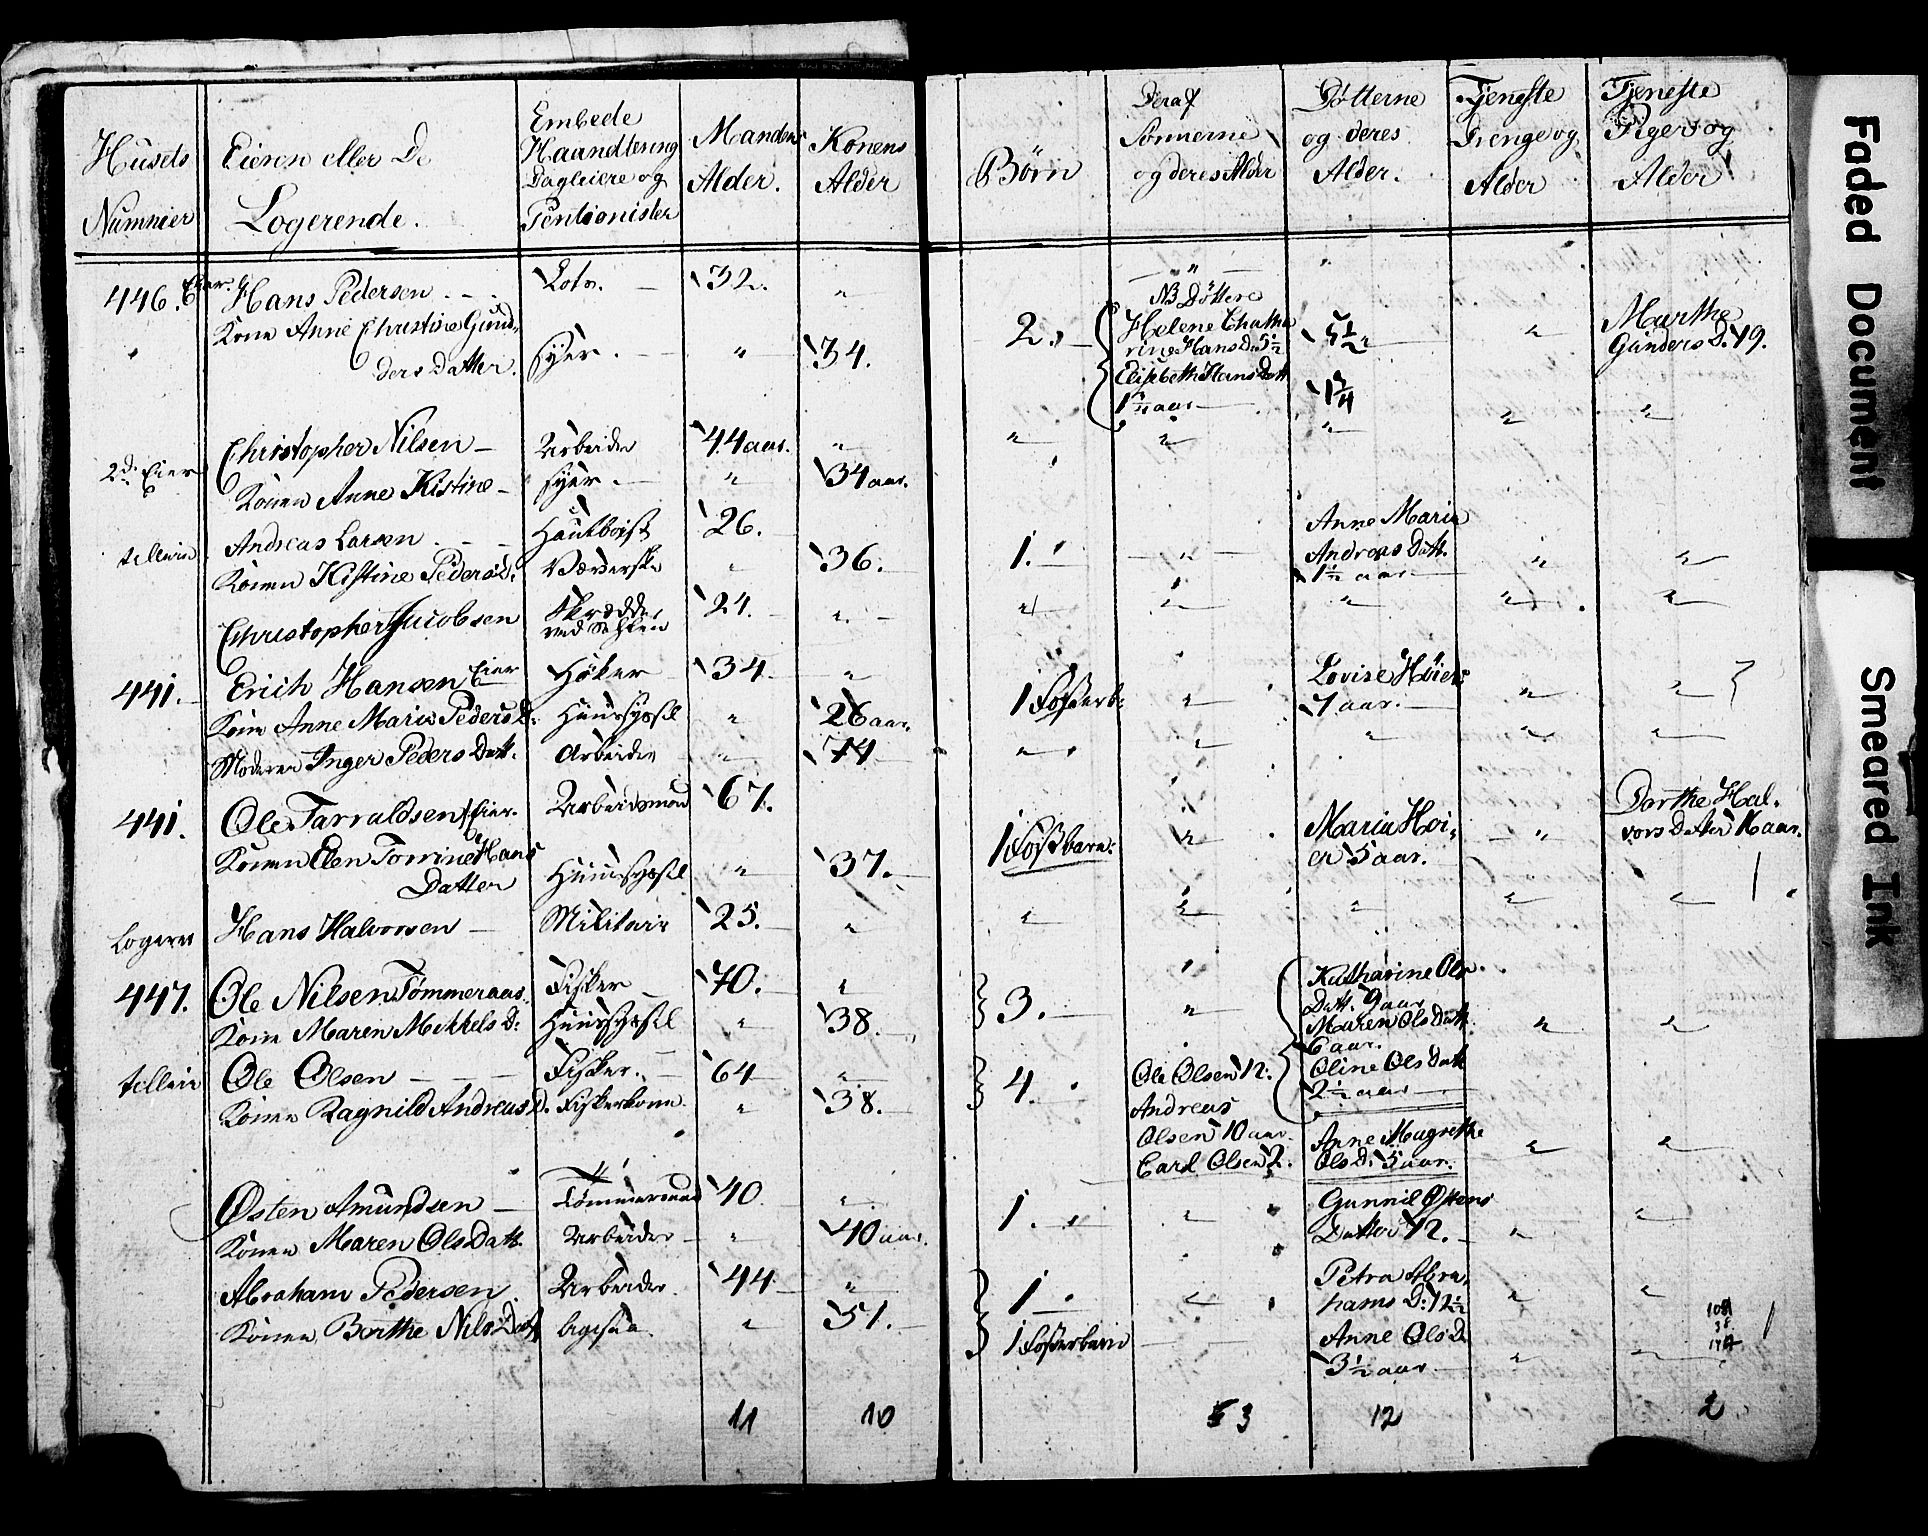 Husets Nummer
Eieren eller De Logerende.
Embede Haandtering Dagleiere og Pentionister
Mandens Alder.
Konens Alder
Børn
Deraf Sønnerne og deres Alder
Døtterne og deres Alder.
Tjeneste Drenge og Alder
Tjeneste Piger og Alder
446. Eier. Hans Pedersen Lots. 32. "
" Kone Anne Christine Gun- syer. " 34.
ders Datter.
2.
NB Døttre
Helene Chatha
rine Hans D. 5½
Elisebeth Hans Datt
1¾ aar
5½
1¾
Marthe
Gunders D. 19.
Christopher Nilsen Arbeider 44 aar. "
2d. Eier Konen Anne Kistine syer. " 34 aar.
Andreas Larsen Hautboist 26.
Konen Kistine Peders D: Væverske " 36.
1.
Anne Maria
Andreas Datt.
1½ aar
Christopher Jacobsen Skrædder 24. "
441. Erich Hansen Eier Høker 34. "
Kone Anne Maria Peders D: Huussyssel " 26 aar.
Moderen Inger Peders Datt. Arbeider " 74
1 Fosterb:
Lovise Høier
7 aar.
441. Ole Tarraldsen Eier. Arbeidsmand 67.
Konen Elen Torrine Hans
Datter Huussyssel " 37.
1 Fostbarn:
Maria Høi-
er 5 aar.
Dorthe Hal-
vors Datter 16 aar.
Logerer Hans Halvorsen Militair 25. "
447. Ole Nilsen Tømmeraas. Fisker 70. "
Kone Maren Mikkels D: Huussyssel " 38.
3.
Katharine Ols
Datt. 9 aar
Maren Ols Datt
6 aar.
Oline Ols Datt
2½ aar
Ole Olsen Fisker. 64 "
Konen Ragnild Andreas D. Fiskerkone. " 38.
4.
Ole Olsen 12.
Andreas
Olsen 10 aar.
Carl Olsen 2.
Anne Magrethe
Ols D. 5 aar.
Østen Amundsen Tømmermand 40. "
Konen Maren Ols Datt. Arbeider " 40 aar.
1.
Gunnil Østens
Datter 12.
Abraham Pedersen. Arbeider. 44. "
Konen Berthe Nils Datt " 51.
1
1 Fosterbarn
Petra Abra-
hams D: 12½
Anne Ols D.
3½ aar
11 10 3 12 2
Faded Document
Smeared Ink